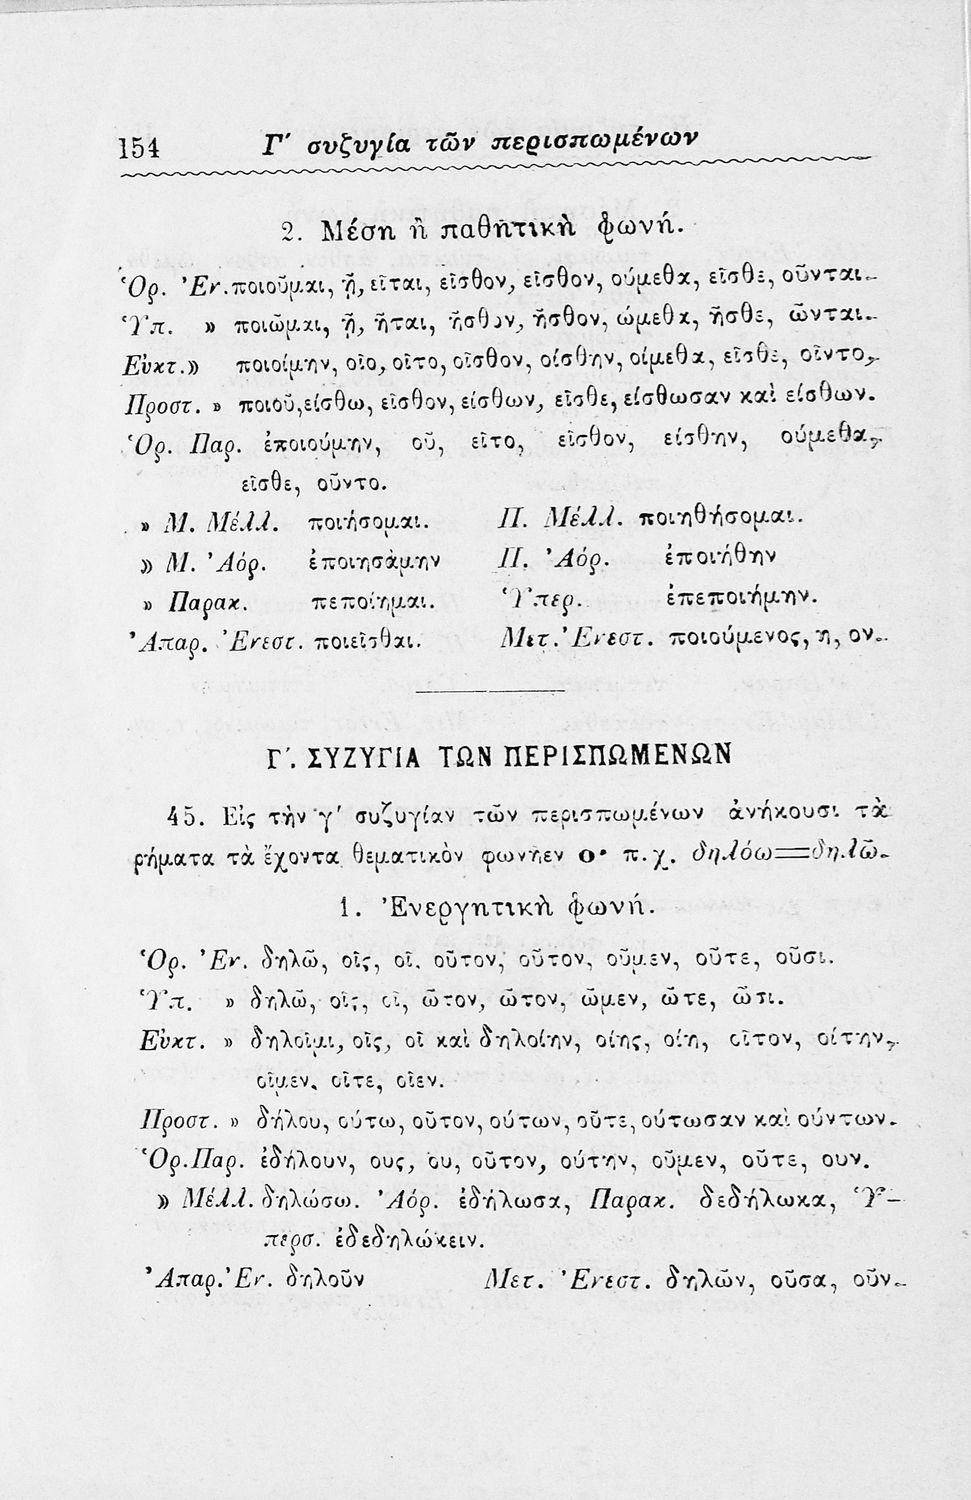 154 Γ΄ συζυγία τῶν περισπωμένων
2. Μέση ἢ παθητικὴ φωνή.
Ὁρ. Ἐν. ποιοῦμαι, ῇ, εῖται, εῖσθον, εῖσθον, ούμεθα, εῖσθε, οῦνται.
Ὑπ. » ποιῶμαι, ῇ, ῆται, ῆσθον, ῆσθον, ώμεθα, ῆσθε, ῶνται.
Εὐκτ. » ποιοίμην, οῖο, οῖτο, οῖσθον, οίσθην, οίμεθα, εῖσθε, οῖντο,
Προστ. » ποιοῦ, είσθω, εῖσθον, είσθων, εῖσθε, είσθωσαν καὶ είσθων.
Ὁρ. Παρ. ἐποιούμην, οῦ, εῖτο, εῖσθον, είσθην, ούμεθα,
εῖσθε, οῦντο.
» Μ. Μέλλ. ποιήσομαι. Π. Μέλλ. ποιηθήσομαι.
» Μ. Ἀόρ. ἐποιησάμην Π. Ἀόρ. ἐποιήθην
» Παρακ. πεποίημαι. Ὑπερ. ἐπεποιήμην.
Ἀπαρ. Ἐνεστ. ποιεῖσθαι. Μετ. Ἐνεστ. ποιούμενος, η, ον.
Γ΄. ΣΥΖΥΓΙΑ ΤΩΝ ΠΕΡΙΣΠΩΜΕΝΩΝ
45. Εἰς τὴν γ΄ συζυγίαν τῶν περισπωμένων ἀνήκουσι τὰ
ρήματα τὰ ἔχοντα θεματικὸν φωνῆεν ο· π.χ. δηλόω=δηλῶ.
1. Ἐνεργητικὴ φωνή.
Ὁρ. Ἐν. δηλῶ, οῖς, οῖ, οῦτον, οῦτον, οῦμεν, οῦτε, οῦσι.
Ὑπ. » δηλῶ, οῖς, οῖ, ῶτον, ῶτον, ῶμεν, ῶτε, ῶσι.
Εὐκτ. » δηλοῖμι, οῖς, οῖ καὶ δηλοίην, οίης, οίη, οῖτον, οίτην,
οῖμεν, οῖτε, οῖεν.
Προστ. » δήλου, ούτω, οῦτον, ούτων, οῦτε, ούτωσαν καὶ ούντων.
Ὁρ. Παρ. ἐδήλουν, ους, ου, οῦτον, ούτην, οῦμεν, οῦτε, ουν.
» Μέλλ. δηλώσω. Ἀόρ. ἐδήλωσα, Παρακ. δεδήλωκα, Ὑ-
περσ. ἐδεδηλώκειν.
Ἀπαρ. Ἐν. δηλοῦν Μετ. Ἐνεστ. δηλῶν, οῦσα, οῦν.